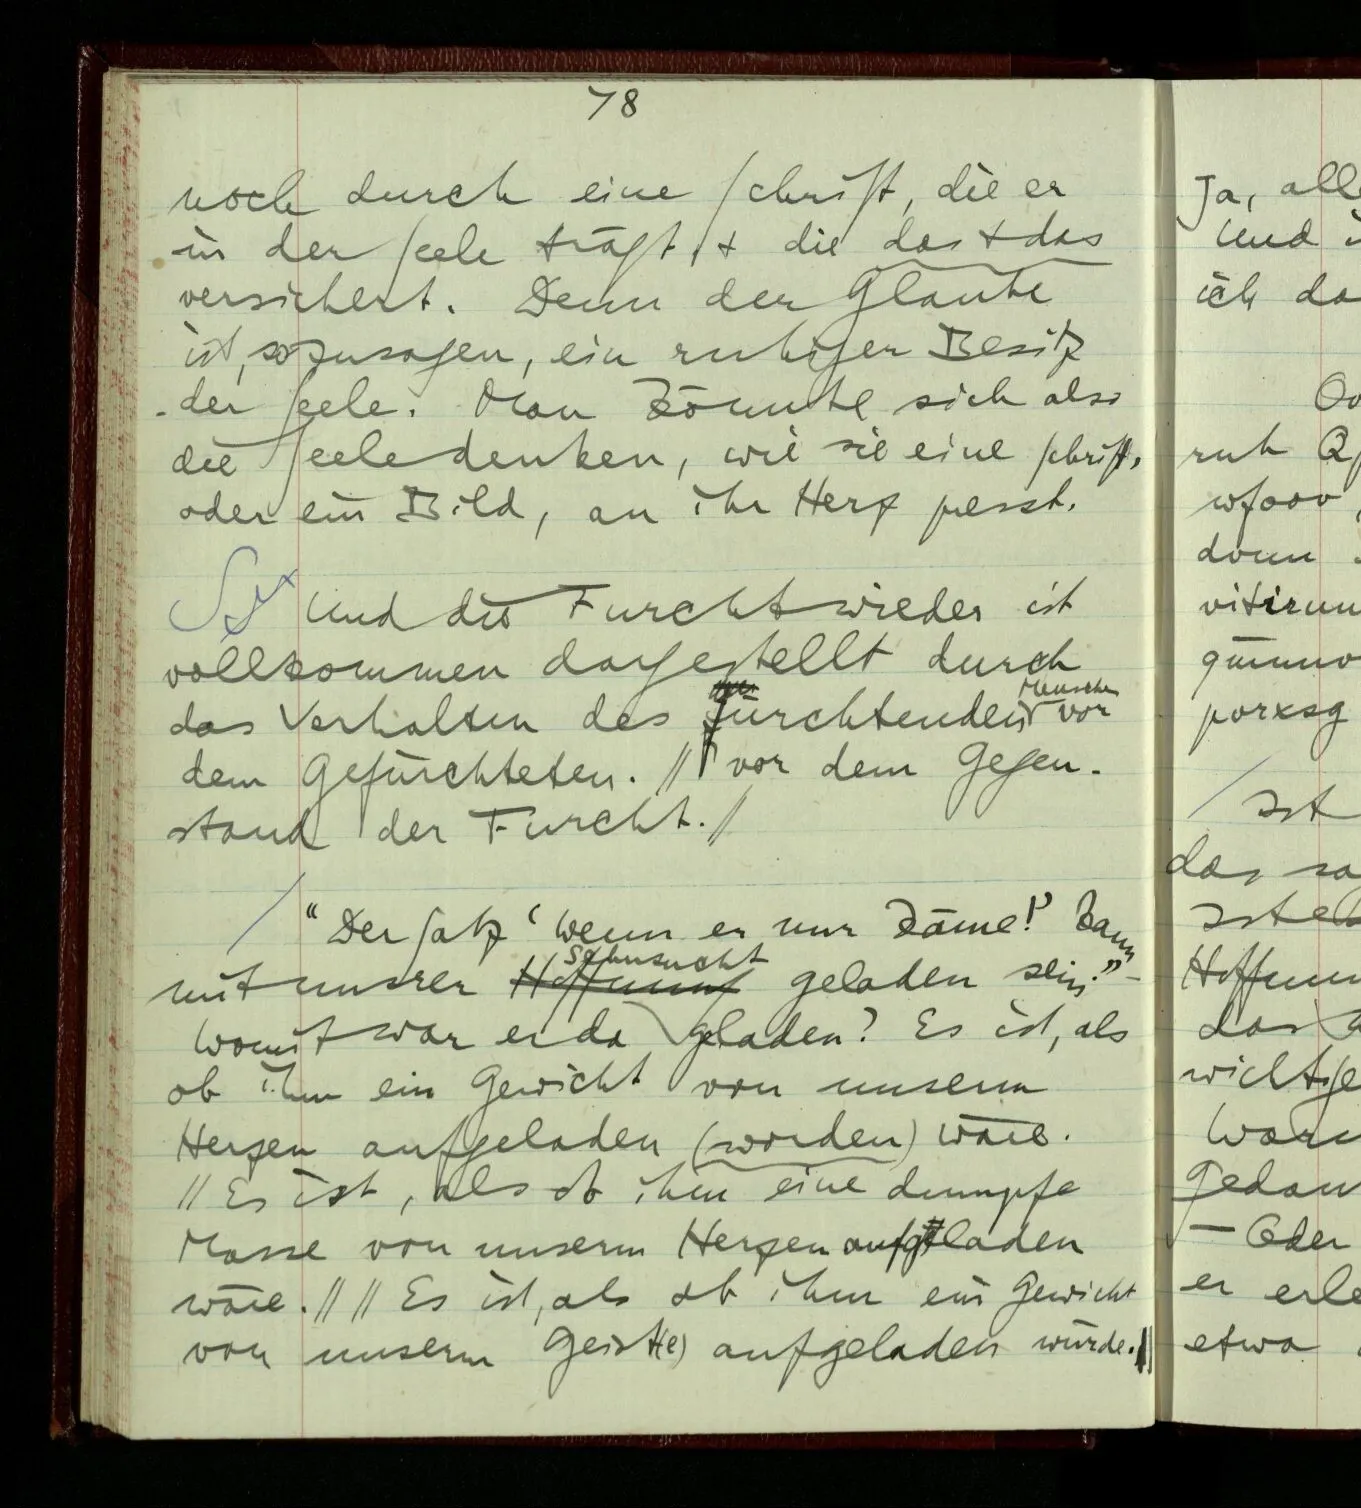 78
noch durch eine Schrift, die er
in der Seele trägt, + die das + das
versichert. Denn der Glaube
ist, sozusagen, ein ruhiger Besitz
der Seele. Man könnte sich also
die Seele denken, wie sie eine Schrift,
oder ein Bild, an ihr Herz presst.
Und die Furcht wieder ist
vollkommen dargestellt durch
das Verhalten des fürchtenden Menschen vor
dem Gefürchteten. // vor dem Gegen-
stand der Furcht. //
/ “Der Satz ‘wenn er nur käme!’ kann
mit unserer Hoffnung Sehnsucht geladen sein.” –
Womit war er da geladen? Es ist, als
ob ihm ein Gewicht von unserm
Herzen aufgeladen (worden) wäre.
// Es ist, als ob ihm eine dumpfe
Masse von unserm Herzen aufgeladen
wäre. // // Es ist, als ob ihm ein Gewicht
von unserm Geist(e) aufgeladen würde. //
Ja, alle
Und
ich da
ruh
wfoov
donn
porxsg
/ Ist
das
Hoffnun
das
wichtige
Waru
Gedan
– Oder
er erle
etwa